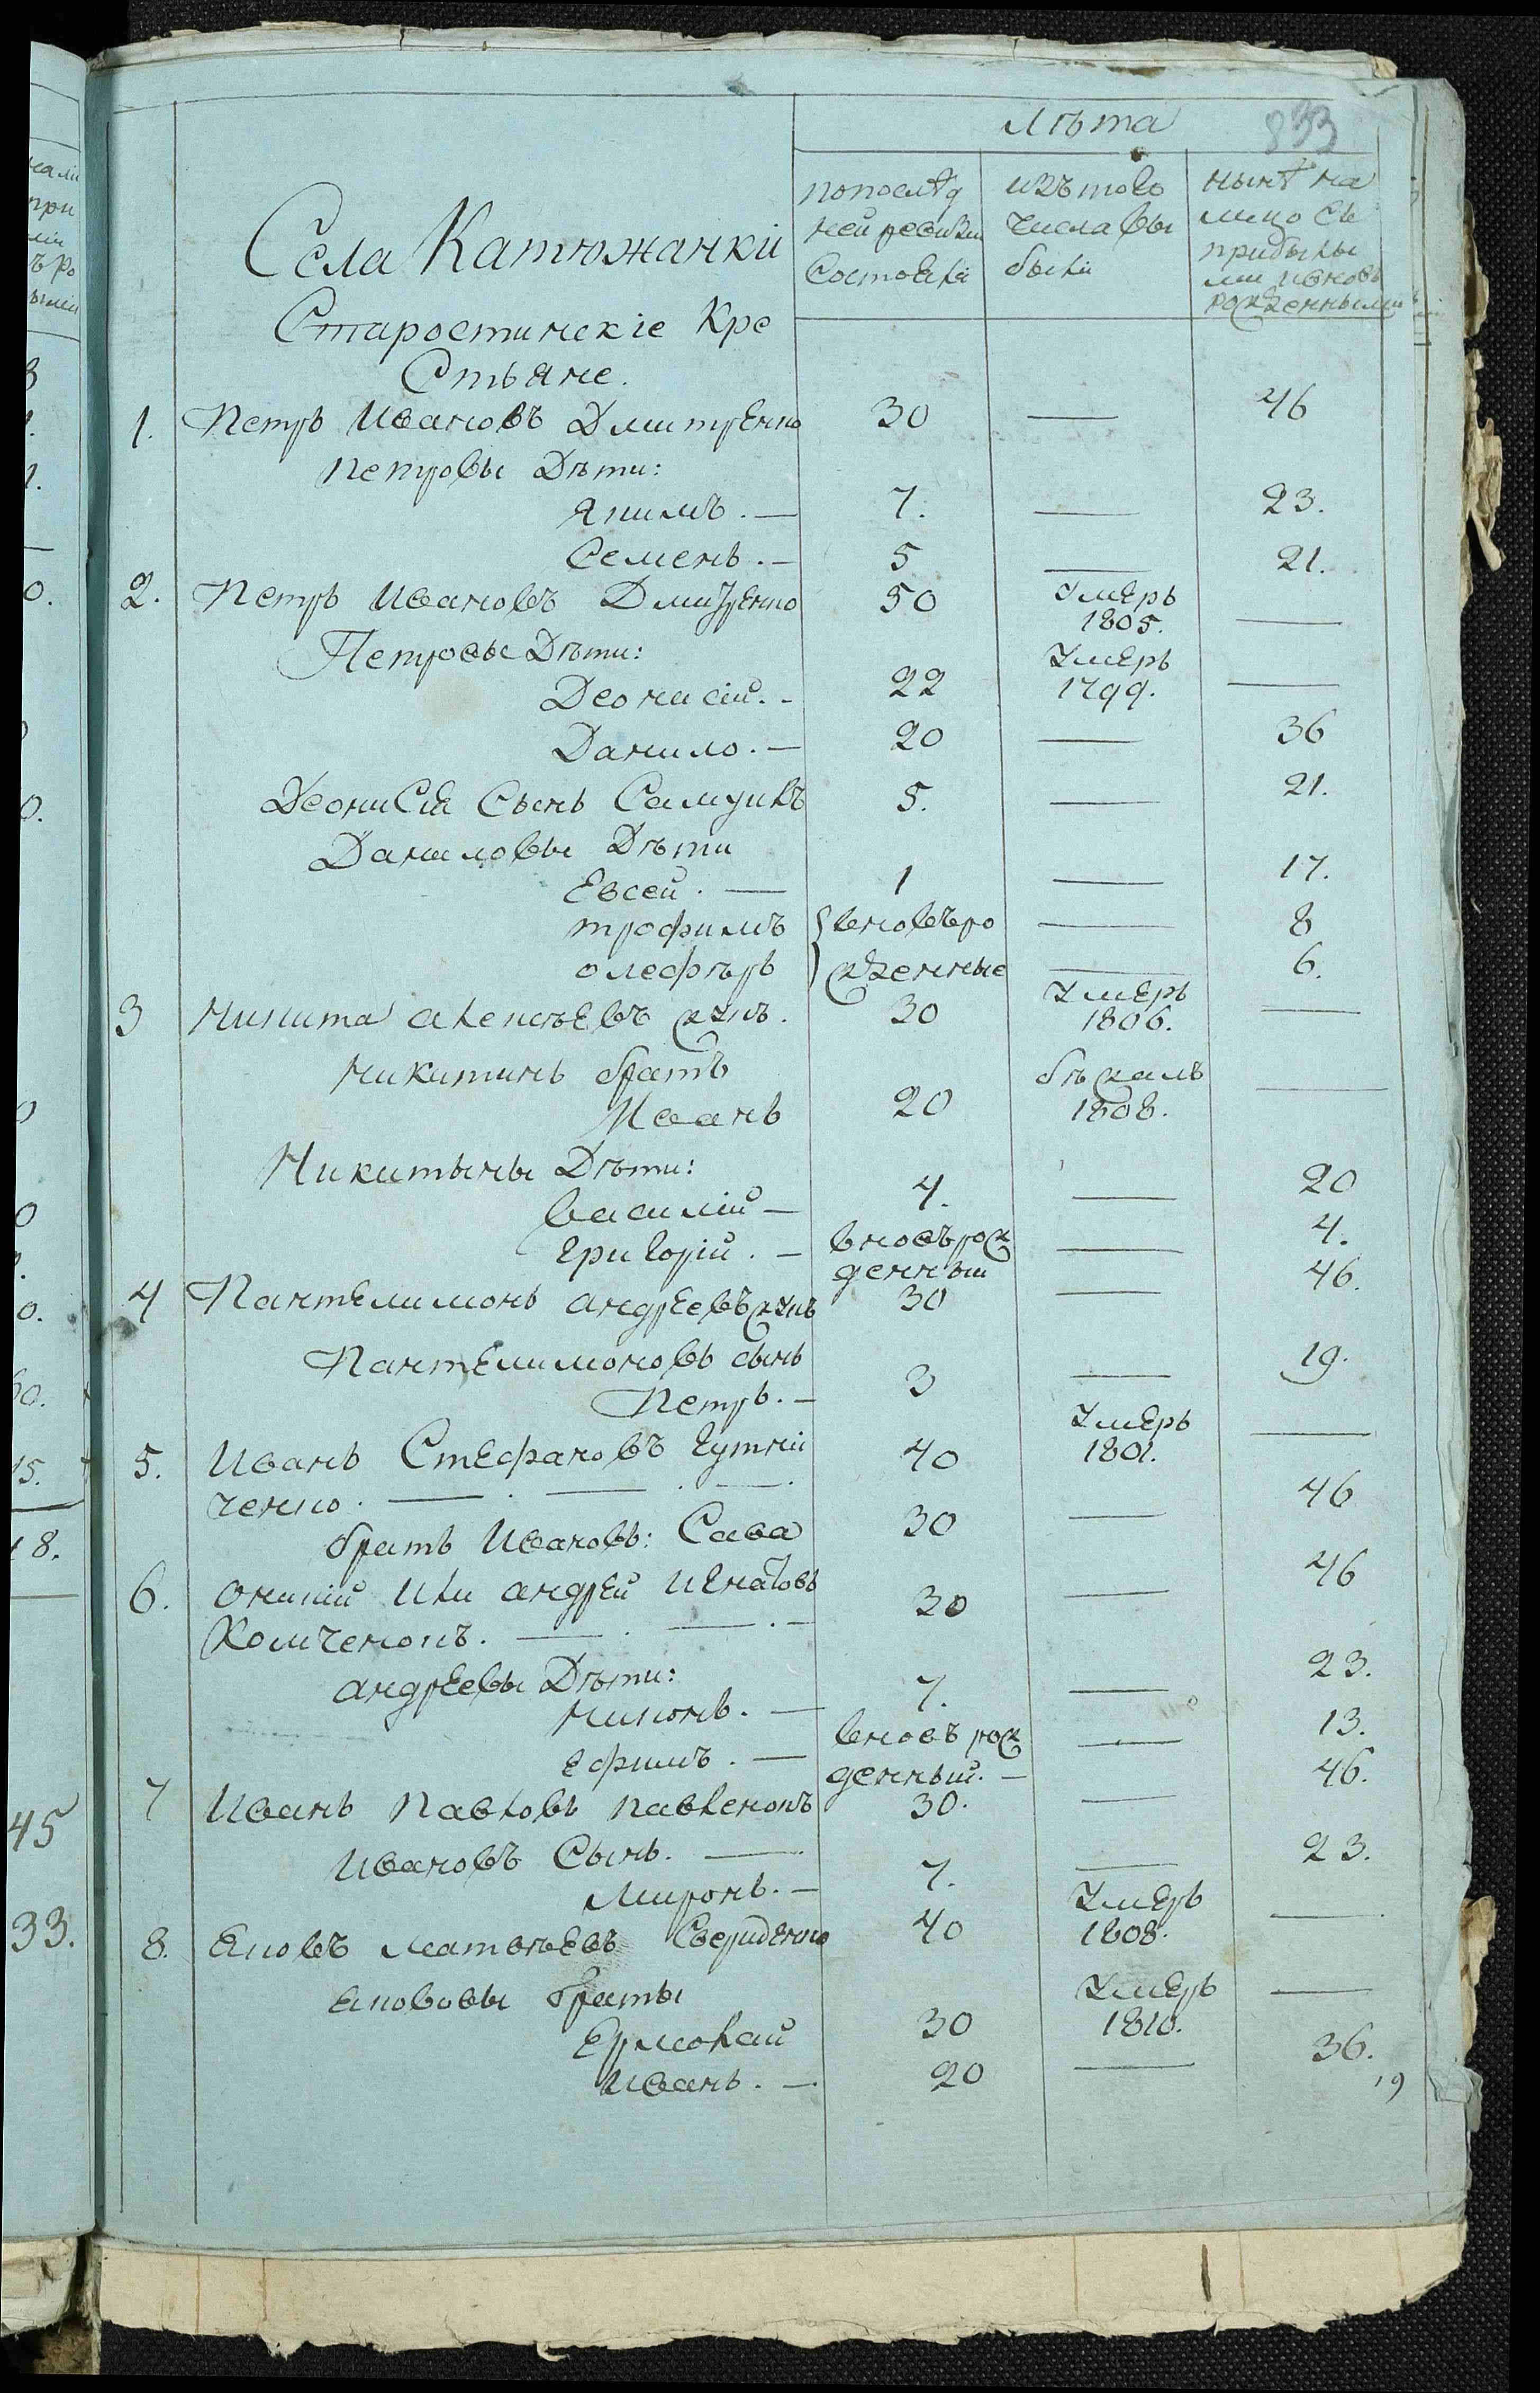 Лѣта 833
попослѣд
ней ревизіи
Состояли
изътово
числа вы
были
нынѣ на
лицо съ
прибылы
ми иновь
рожденными
Села Катюжанкіи
Старостинскіе Кре
стьяне.
1. Петръ Ивановъ Дмитренко 30 — 46
Петровы Дѣти:
Якимъ. — 7. — 23.
Семенъ. — 5 — 21.
2. Петръ Ивановъ Дмитренко 50 Умеръ 1805. —
Петровы Дѣти:
Деонисій. - 22 Умеръ 1799. —
Данило. — 20 — 36
Деонисія Сынъ Самуилъ 5. — 21.
Даниловы Дѣти
Евсей. — 1 — 17.
трофимъ вновъро — 8
олефѣръ жденные — 6.
3 Никита алексѣевъ 30 Умеръ 1806. —
Никитинъ братъ
Иванъ 20 бѣжалъ 1808. —
Никитины Дѣти:
василій — 4. — 20
григорій. — вновърож — 4.
денный
4 Пантелимонъ андреевъ 30 — 46.
Пантелимоновъ сынъ
Петръ. — 3 — 19.
5. Иванъ Стефановъ гутни 40 Умеръ 1801. —
ченко. — . — . — .
братъ Ивановъ: Сава 30 — 46
6. или андрей игнатовъ 30 — 46
Хомченокъ. — . — . —
андреевы Дѣти:
Никонъ. — 7. — 23.
ефимъ. — вновъ рож — 13.
денный. —
7 Иванъ Павловъ павленокъ 30. — 46.
Ивановъ Сынъ. —
Миронъ. — 7. — 23.
8. Яковъ матвѣевъ Свериденко 40 Умеръ 1808. —
Якововы браты
Ермолай 30 Умеръ 1810. —
Иванъ. — 20 — 36.